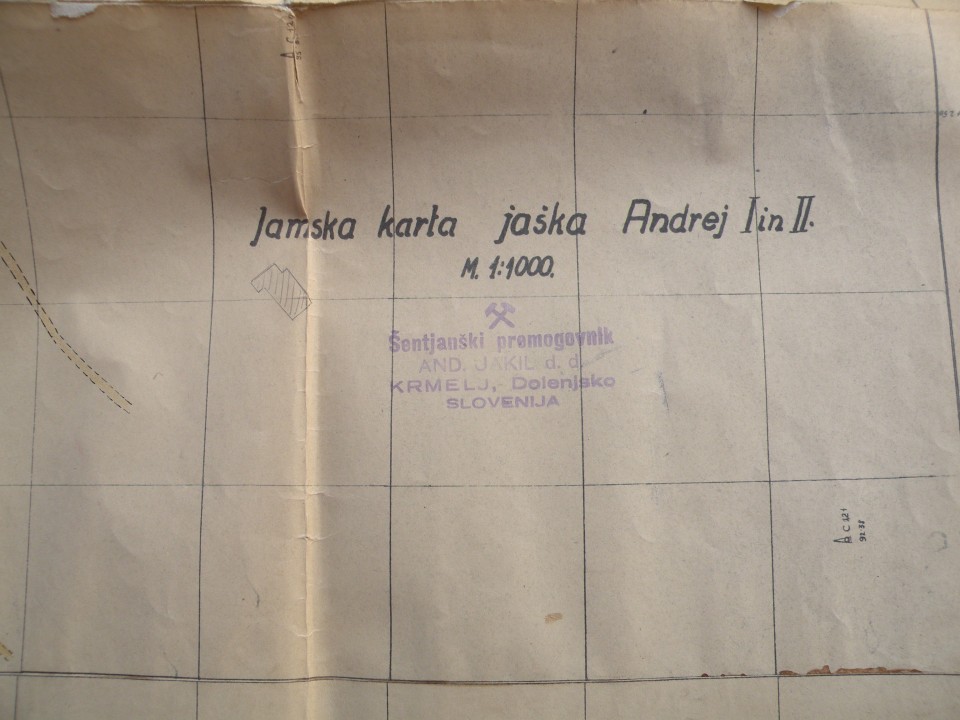 Jamska karta jaška Andrej I in II.
M. 1:1000.
Šentjanški premogovnik
AND. JAKIL d. d.
KRMELJ, Dolenjsko
SLOVENIJA
A C 121